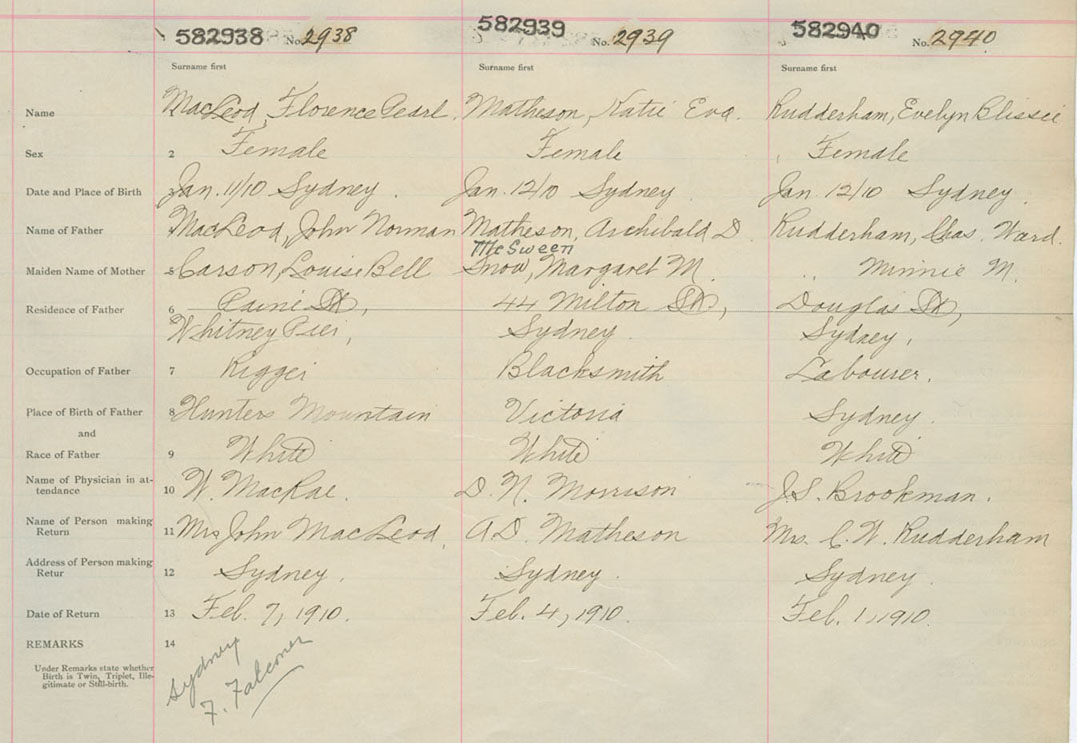 582938 No. 2938 582939 No. 2939 582940 No. 2940
Surname first Surname first Surname first
Name MacLeod, Florence Pearl Matheson, Katie Eva. Rudderham, Evelyn Blissie
Sex 2 Female Female Female
Date and Place of Birth 3 Jan. 11/10 Sydney. Jan. 12/10 Sydney Jan. 12/10 Sydney.
Name of Father MacLeod, John Norman Matheson, Archibald D. Rudderham, Chas. Ward.
McSween
Maiden Name of Mother 5 Carson, Louise Bell Snow, Margaret M. " Minnie M.
Residence of Father 6 Paine St, 44 Milton St, Douglas St,
Whitney Pier, Sydney. Sydney,
Occupation of Father 7 Rigger Blacksmith Labourer.
Place of Birth of Father 8 Hunters Mountain Victoria Sydney.
and
Race of Father 9 White White White
Name of Physician in at-
tendance 10 W. MacRae. D. N. Morrison J.S. Brookman.
Name of Person making
Return 11 Mrs John MacLeod, A.D. Matheson Mrs. C. W. Rudderham
Address of Person making
Retur 12 Sydney. Sydney. Sydney.
Date of Return 13 Feb. 7, 1910. Feb. 4, 1910. Feb. 1, 1910.
REMARKS 14
Under Remarks state whether
Birth is Twin, Triplet, Ille-
gitimate or Still-birth.
Sydney
F. Falconer